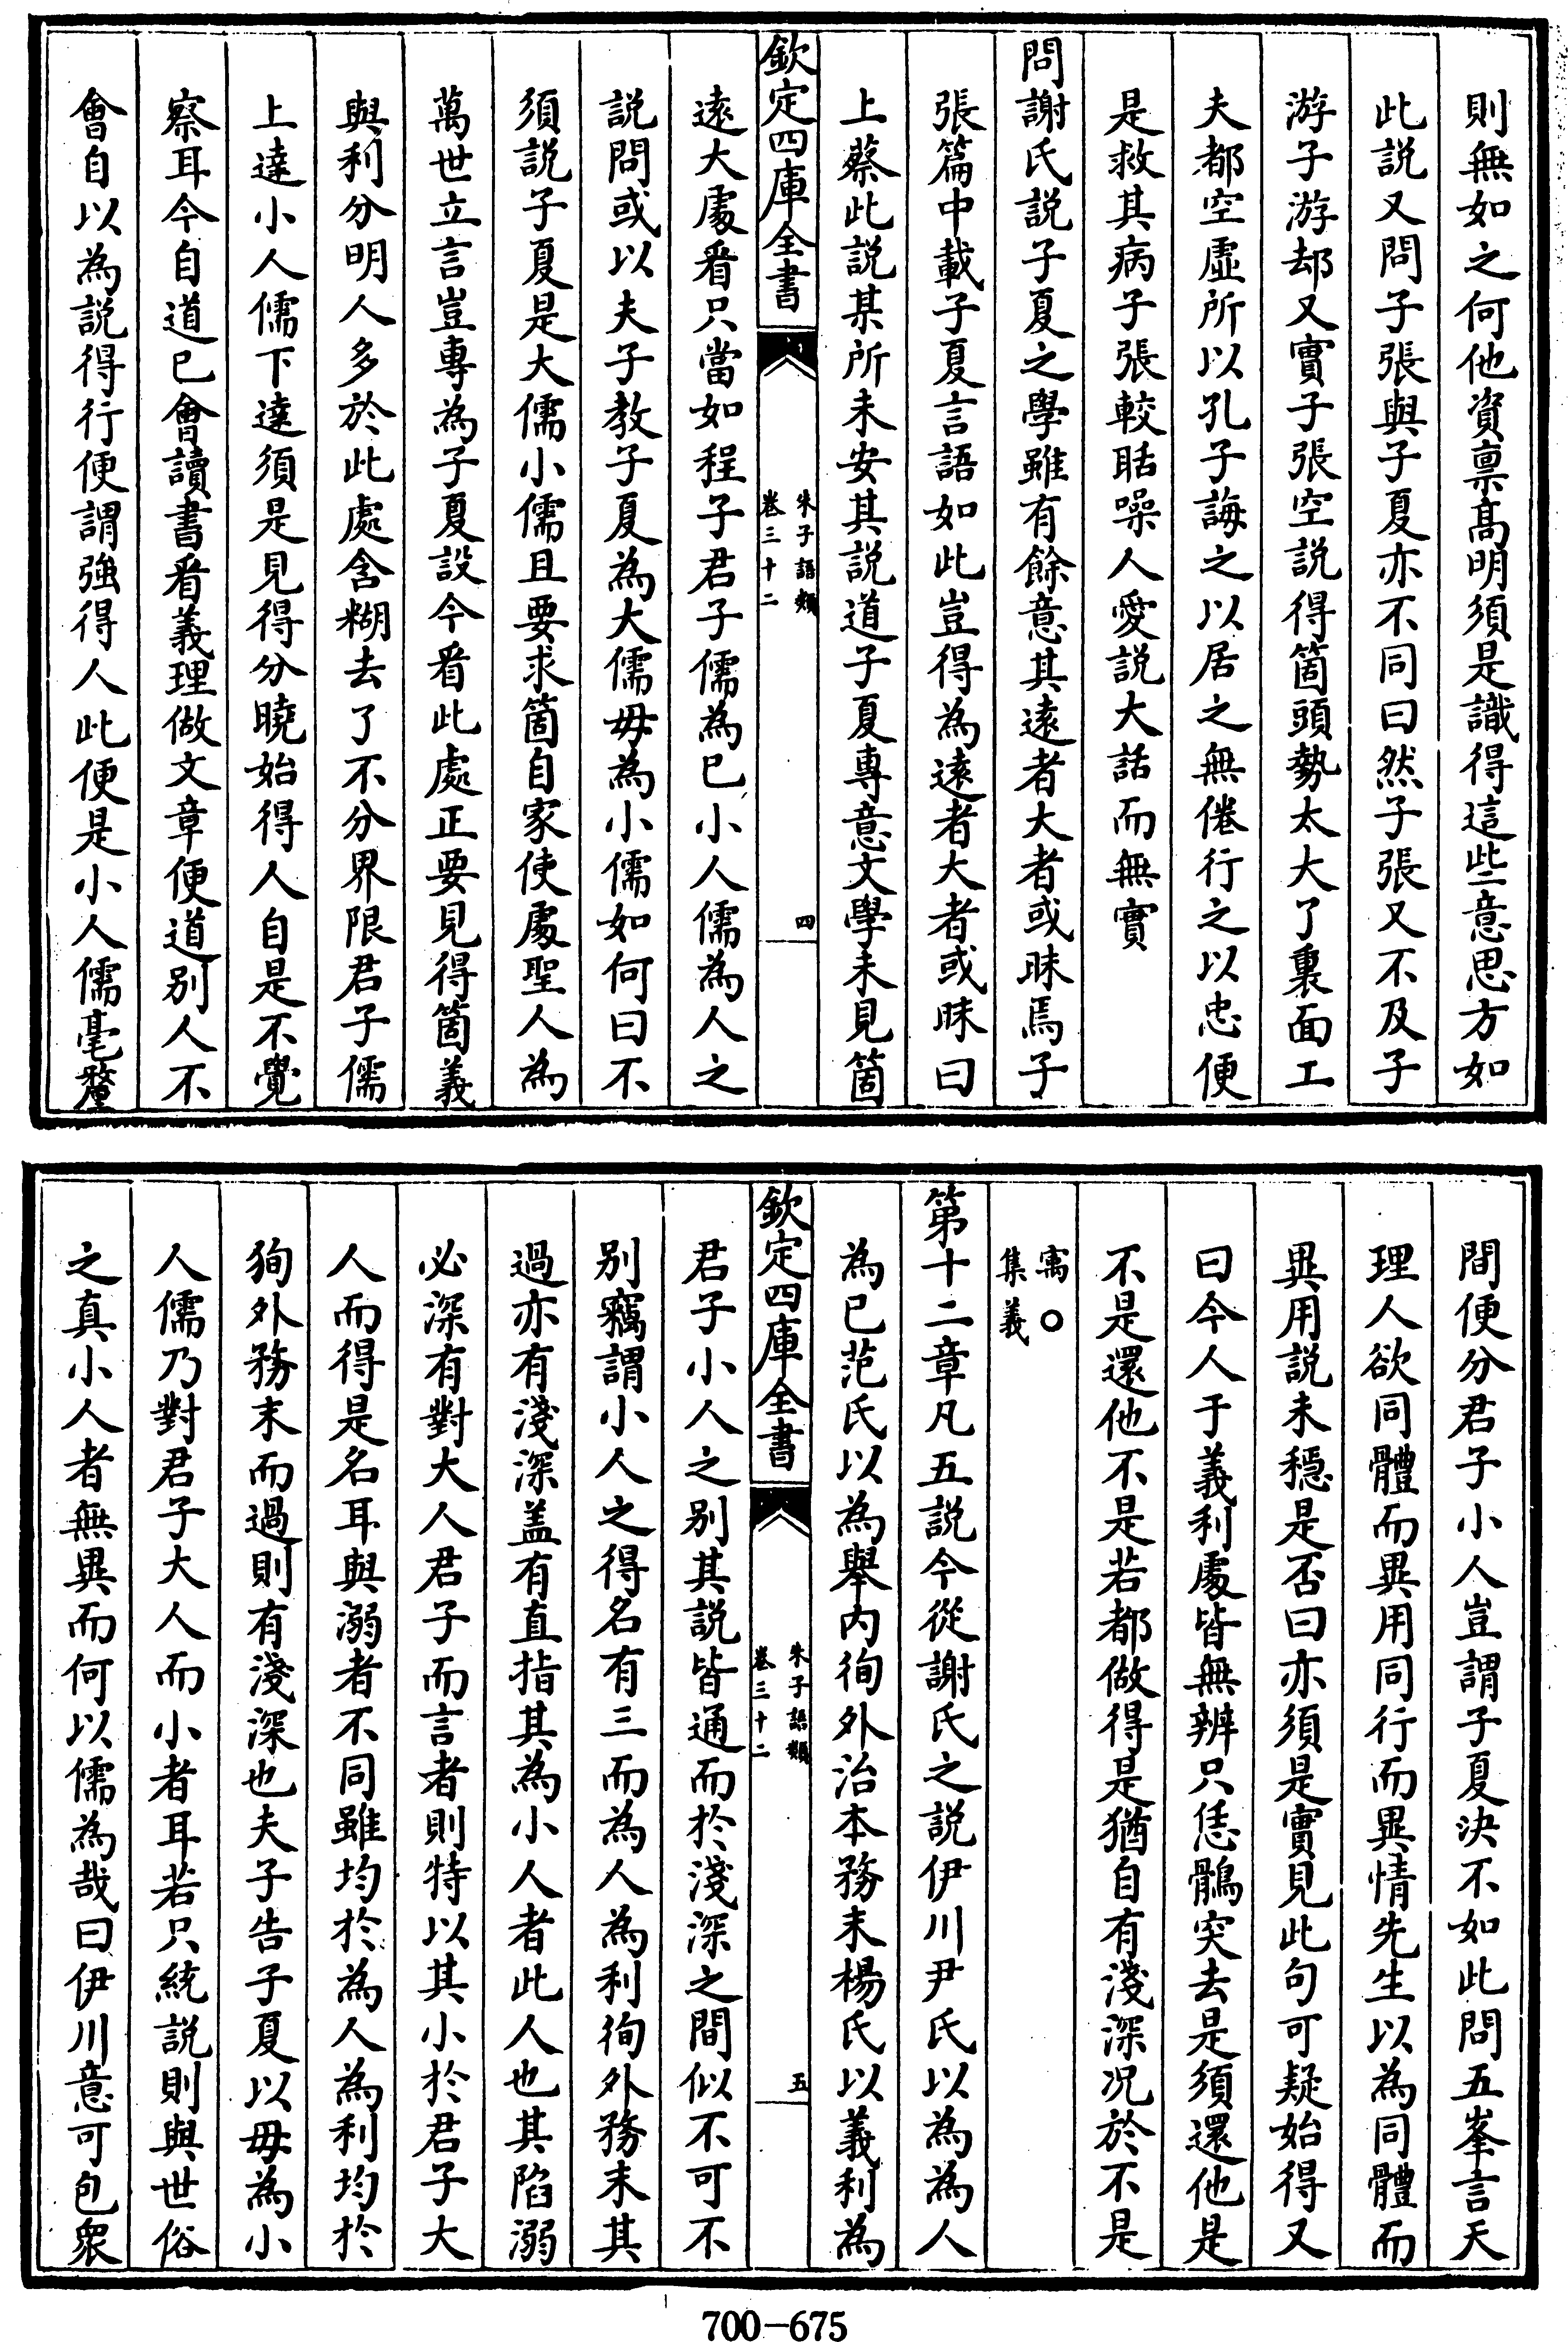 則無如之何他資禀髙明須是識得這些意思方如
此説又問子張與子夏亦不同曰然子張又不及子
游子游却又實子張空説得箇頭勢太大了裏面工
夫都空虚所以孔子誨之以居之無倦行之以忠便
是救其病子張較聒噪人愛説大話而無實
問謝氏説子夏之學雖有餘意其遠者大者或昧焉子
張篇中載子夏言語如此豈得為遠者大者或昧曰
上蔡此説某所未安其説道子夏專意文學未見箇
欽定四庫全書
朱子語類
卷三十二
四
遠大處看只當如程子君子儒為已小人儒為人之
説問或以夫子教子夏為大儒毋為小儒如何曰不
須説子夏是大儒小儒且要求箇自家使處聖人為
萬世立言豈專為子夏設今看此處正要見得箇義
與利分明人多於此處含糊去了不分界限君子儒
上達小人儒下達須是見得分曉始得人自是不覺
察耳今自道已會讀書看義理做文章便道别人不
會自以為説得行便謂強得人此便是小人儒毫釐
間便分君子小人豈謂子夏決不如此問五峯言天
理人欲同體而異用同行而異情先生以為同體而
異用説未穩是否曰亦須是實見此句可疑始得又
曰今人于義利處皆無辨只恁鶻突去是須還他是
不是還他不是若都做得是猶自有淺深况於不是
㝢○
集義
第十二章凡五説今從謝氏之説伊川尹氏以為為人
為已范氏以為舉内徇外治本務末楊氏以義利為
欽定四庫全書
朱子語類
卷三十二
五
君子小人之别其説皆通而於淺深之間似不可不
别竊謂小人之得名有三而為人為利徇外務末其
過亦有淺深盖有直指其為小人者此人也其陷溺
必深有對大人君子而言者則特以其小於君子大
人而得是名耳與溺者不同雖均於為人為利均於
狥外務末而過則有淺深也夫子告子夏以毋為小
人儒乃對君子大人而小者耳若只統説則與世俗
之真小人者無異而何以儒為哉曰伊川意可包衆
700-675